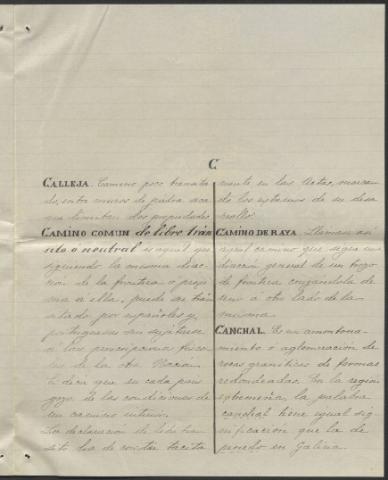 C
CALLEJA. Camino poco transita-
do, entre muros de piedra
que limitan dos propiedades.
CAMINO COMUN de libre trán-
sito ó neutral es aquel que
siguiendo la misma direc-
ción de la frontera ó próxi-
ma á ella, puede ser tran-
sitado por españoles y
portugueses sin sujetarse
á las prescripciones fisca-
les de la otra Nación.
Es decir que en cada pais
goza de las condiciones de
un camino interior.
La declaración de libre trán-
sito ha de constar tacita
mente en las Actas, marcan-
do los extremos de su desa-
rrollo.
CAMINO DE RAYA. Llamase así
aquel camino que sigue la
dirección general de un trozo
de frontera cruzandola de
uno á otro lado de la
misma.
CANCHAL. Es un amontona-
miento ó aglomeración de
rocas graniticas de formas
redondeadas. En la región
extremeña, la palabra
canchal tiene igual sig-
nificación que la de
penedo en Galicia.